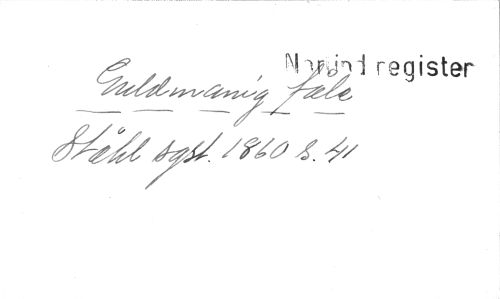 Norjind register
Guldmanig fåle
Ståhl sgst. 1860 s. 41